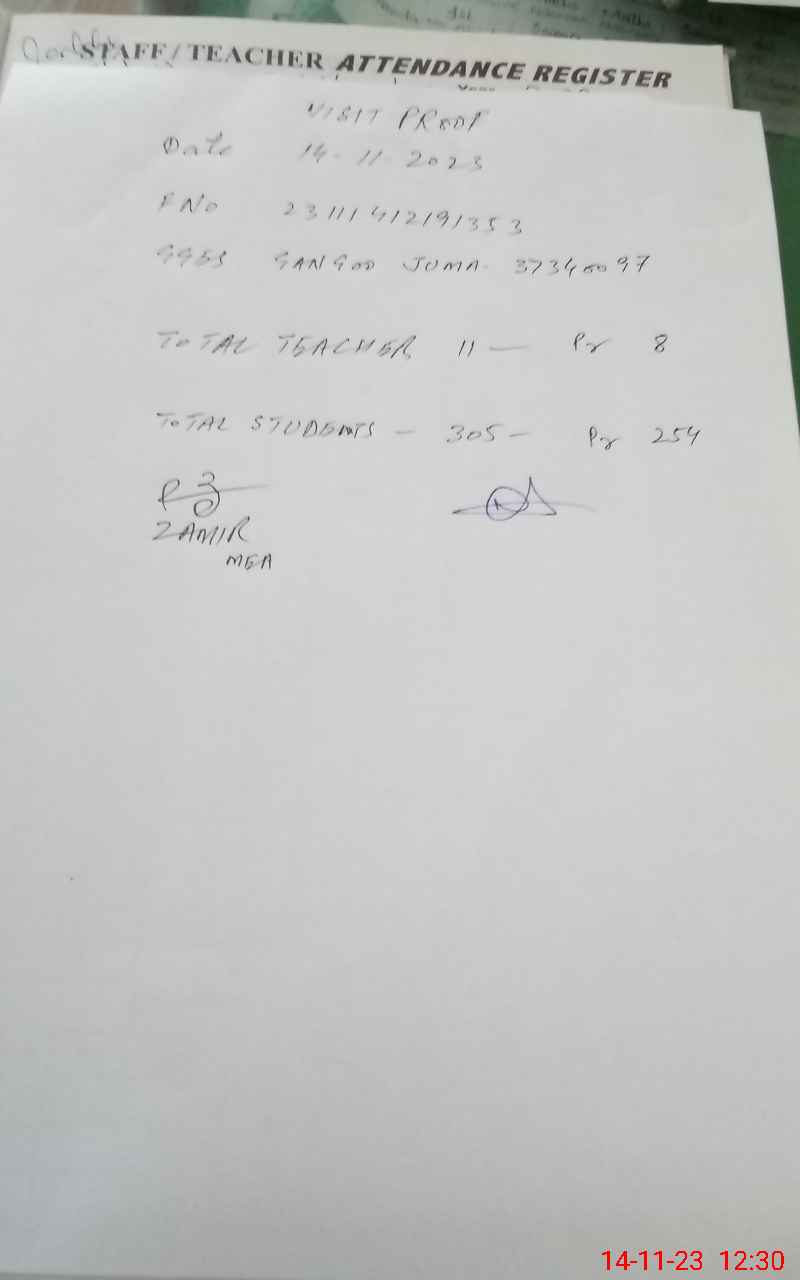 STAFF/TEACHER ATTENDANCE REGISTER
VISIT PROOF
Date 14-11-2023
FNo 23111412191353
GGES GANGOO JUMA. 37340097
TOTAL TEACHER 11 — Pr 8
TOTAL STUDENTS — 305 — Pr 254
ZAMIR
MEA
14-11-23 12:30